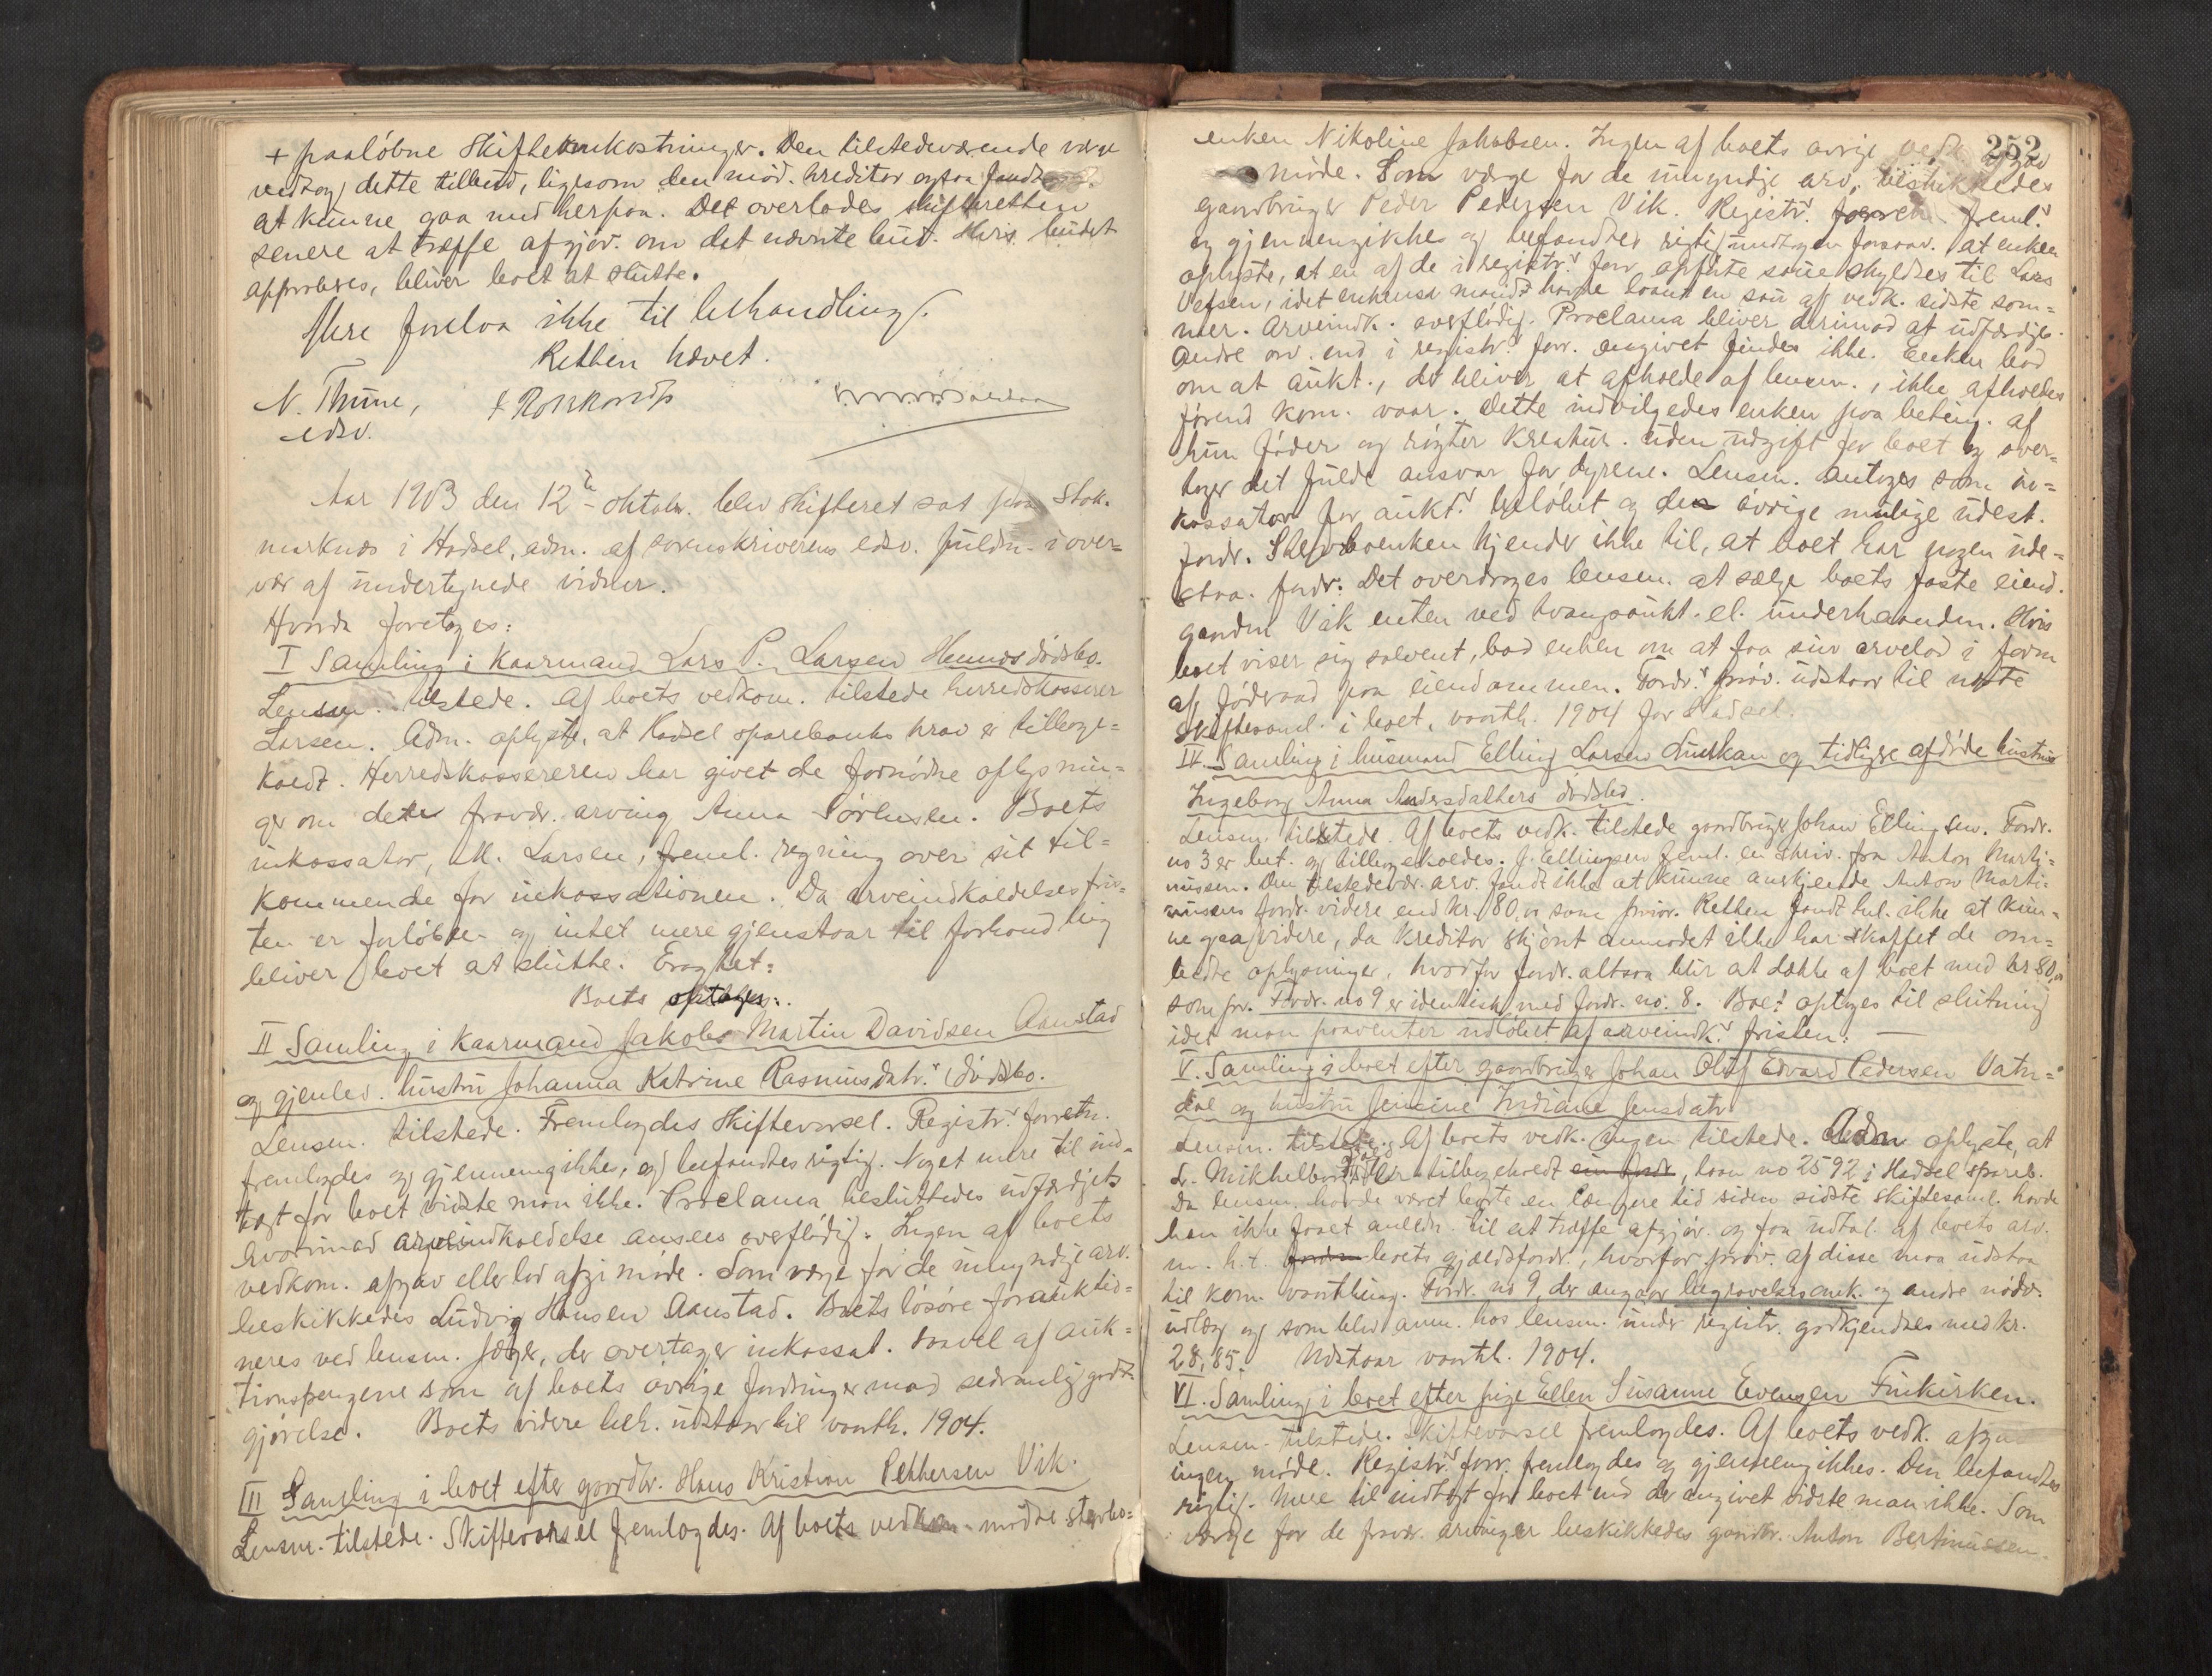 + paaløbne skifteomkostninger. Den tilstedeværende værge
vedtog dette tilbud, ligesom den mød. kreditor ogsaa fandt
at kunne gaa med herpaa. Det overlodes skifteretten
senere at træffe afgjør. om det nævnte bud. Hvis budet
approberes, bliver boet at slutte.
Mere forelaa ikke til behandling.
Retten hævet.
N. Thune,
edsv.
Aar 1903 den 12te oktober blev skifteret sat paa Stok-
marknes i Hadsel, adm. af sorenskriverens edsv. fuldm. i over-
vær af undertegnede vidner.
Hvorda foretoges:
I Samling i kaarmand Lars P. Larsen Hennes dødsbo.
Lensm. tilstede. Af boets vedkom. tilstede herredskasserer
Larsen. Adm. oplyste, at Hadsel sparebanks krav er tilbage-
kaldt. Herredskassereren har givet de fornødne oplysnin-
ger om den fravær. arving Anna Sørensen. Boets
inkassator, M. Larsen, freml. regning over sit til-
kommende for inkassationen. Da arveindkaldelsesfris-
ten er forløben og intet mere gjenstaar til forhandling
bliver boet at slutte. Eragtet:
Boets optages:
II Samling i kaarmand Jakob Martin Davidsen Aanstad
og gjenlev. hustru Johanna Katrine Rasmusdatr. dødsbo.
Lensm. tilstede. Fremlagdes skiftevarsel. Registr. forretn.
fremlagdes og gjennemgikkes, og befandtes rigtig. Noget mere til ind-
tægt for boet vidste man ikke. Proclama besluttedes udfærdiget
hvorimod arveindkaldelse ansees overflødig. Ingen af boets
vedkom. afgav eller lod afgi møde. Som værge for de umyndige arv.
beskikkedes Ludvig Hansen Aanstad. Boets løsøre foraukti-
neres ved lensm. Jæger, der overtager inkassat. saavel af auk-
tionspengene som af boets øvrige fordringer mod sedvanlig godt-
gjørelse. Boets videre beh. udstaar til vaarth. 1904.
III Samling i boet efter gaardbr. Hans Kristian Pettersen Vik.
Lensm. tilstede. Skiftevarsel fremlagdes. Af boets vedkom. mødte stervbo-
252
enken Nikoline Jakobsen. Ingen af boets øvrige vedk. afgav
møde. Som værge for de umyndige arv. beskikkedes
gaardbruger Peder Pedersen Vik. Registr. forretn. freml.
og gjennemgikkes og befandtes rigtig undtagen forsaav. at enken
oplyste, at en af de i registr. forr. opførte saue skyldtes til Lars
idet enkens mand havde laant en sau af vedk. sidste som-
mer. Arveindk. overflødig. Proclama bliver derimod at udfærdige.
Andre arv. end i registr. forr. angivet findes ikke. Enken bad
om at aukt., der bliver at afholde af lensm., ikke afholdes
førend kom. vaar. Dette indvilgedes enken paa beting. af
hun foder og røgter kreatur. uden udgift for boet og over-
tager det fulde ansvar for dyrene. Lensm. antoges som in-
kassator for aukt. beløbet og den øvrige mulige udest.
fordr. Stervboenken kjender ikke til, at boet har nogen ude-
staa. fordr. Det overdroges lensm. at sælge boets faste eiend.
gaarden Vik enten ved tvangsaukt. el. underhaanden. Hvis
boet viser sig solvent, bad enken om at faa sin arvelod i form
af føderaad paa eiendommen. Fordr. prøv. udstaar til næste
skiftesaml. i boet, vaarth. 1904 for Hadsel.
IV. Samling i husmand Elling Larsen og tidligere afdøde hustru
Ingeborg Anna Andersdatters dødsbo.
Lensm. tilstede. Af boets vedk. tilstede gaardbruger Johan Ellingsen. Fordr.
no 3 er bet. og tilbagekaldes. J. Ellingsen freml. en skriv. fra Anton Marti-
nussen. Den tilstedevær. arv. fandt ikke at kunne anerkjende Anton Marti-
nussens fordr. videre end kr. 80,00 som prior. Retten fandt hel. ikke at kun-
ne gaa videre, da kreditor skjønt anmodet ikke har skaffet de om-
bedte oplysninger, hvorfor fordr. altsaa blir at dække af boet med kr 80,00
som pr. Fordr. no 9 er identisk med fordr. no. 8. Boet optages til slutning
idet man paaventer udløbet af arveindk. fristen.
V. Samling i boet efter gaardbruger Johan Olaf Edvard Pedersen Vatn-
dal og hustru Jensine Indiane Jensdatr.
Lensm. tilstede. Af boets vedk. ingen tilstede. Adm oplyste, at
L. Mikkelborg har tilbagekaldt , laan no 2592 i Hadsel spareb.
Da lensm. havde været borte en længere tid siden sidste skiftesaml. havde
han ikke faaet anledn. til at træffe afgjør. og faa udtal. af boets arv.
m. h. t. boets gjældsfordr., hvorfor prøv. af disse maa udstaa
til kom. vaarthing. Fordr. no 9, der angaar begravelsesomk. og andre nødv.
udlæg og som blev anm. hos lensm. under registr. godkjendtes med kr.
28,85. Udstaar vaarth. 1904.
VI. Samling i boet efter pige Ellen Susanne Evensen Finkirken.
Lensm. tilstede. Skiftevarsel fremlagdes. Af boets vedk. afgav
ingen møde. Registr. forr. fremlagdes og gjennemgikkes. Den befandtes
rigtig. Mere til indtægt for boet end der angivet vidste man ikke. Som
værge for de fravær. arvinger beskikkedes gaardbr. Anton Bertinussen.